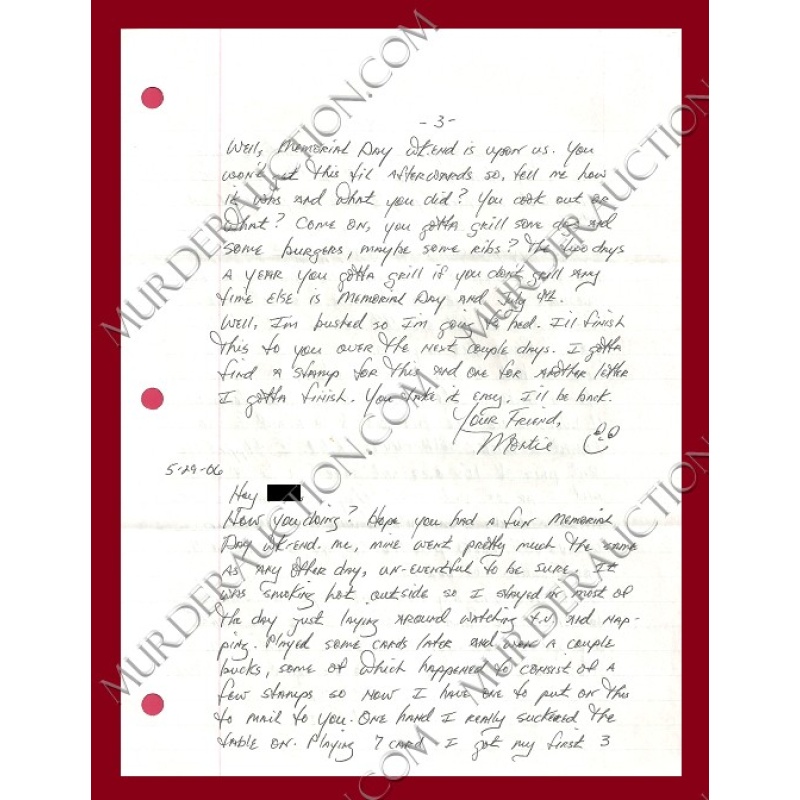 - 3 -
Well, Memorial Day wk.end is upon us. You
won't this til afterwards so, tell me how
it was and what you did? You cook out or
what? Come on, you gotta grill some dogs and
some burgers, maybe some ribs? The two days
a year you gotta grill if you don't grill any
time else is Memorial Day and July 4th.
Well, I'm busted so I'm going to bed. I'll finish
this to you over the next couple days. I gotta
find a stamp for this and one for another letter
I gotta finish. You take it easy, I'll be back.
Your Friend,
Montie
5-29-06
Hey
How you doing? Hope you had a fun Memorial
Day wk-end. Me, mine went pretty much the same
as any other day, un-eventful to be sure. It
was smoking hot outside so I stayed in most of
the day just laying around watching t.v. and nap-
ping. Played some cards later and won a couple
bucks, some of which happened to consist of a
few stamps so now I have one to put on this
to mail to you. One hand I really suckered the
table on. Playing 7 card I got my first 3
MURDERAUCTION.COM